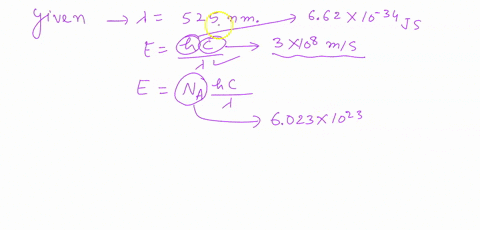 Given → λ = 525 nm. → 6.62 × 10⁻³⁴ JS
E = hC/λ → 3 × 10⁸ m/s
E = N_A hC/λ
→ 6.023 × 10²³